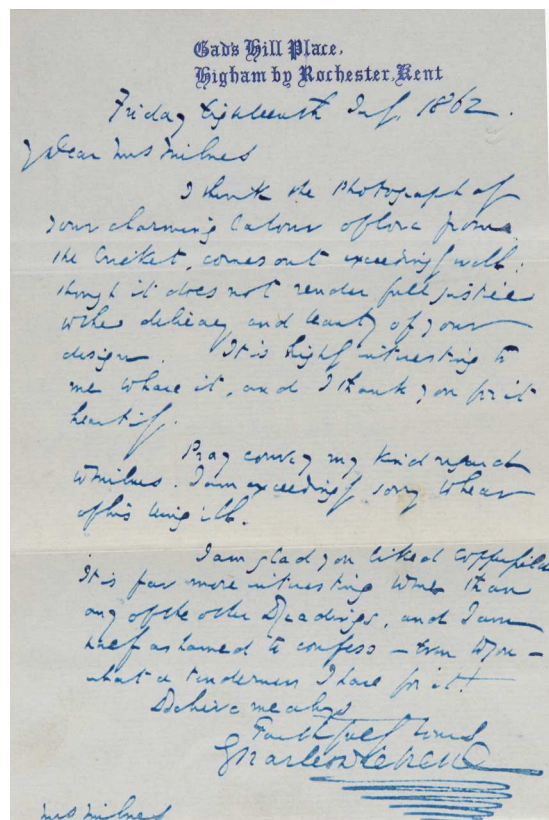 Gad's Hill Place,
Higham by Rochester, Kent
Friday Eighteenth July, 1862.
My Dear Mrs Milnes
I think the Photograph of
your charming labour of love from
the Cricket, comes out exceedingly well;
though it does not render full justice
to the delicacy and beauty of your
design. It is highly interesting to
me to have it, and I thank you for it
heartily.
Pray convey my kind regards
to Milnes. I am exceedingly sorry to hear
of his being ill.
I am glad you liked Copperfield.
It is far more interesting to me than
any of the other Readings, and I am
half ashamed to confess – even to you –
what a tenderness I have for it!
Believe me always
Faithfully Yours
Charles Dickens
Mrs Milnes